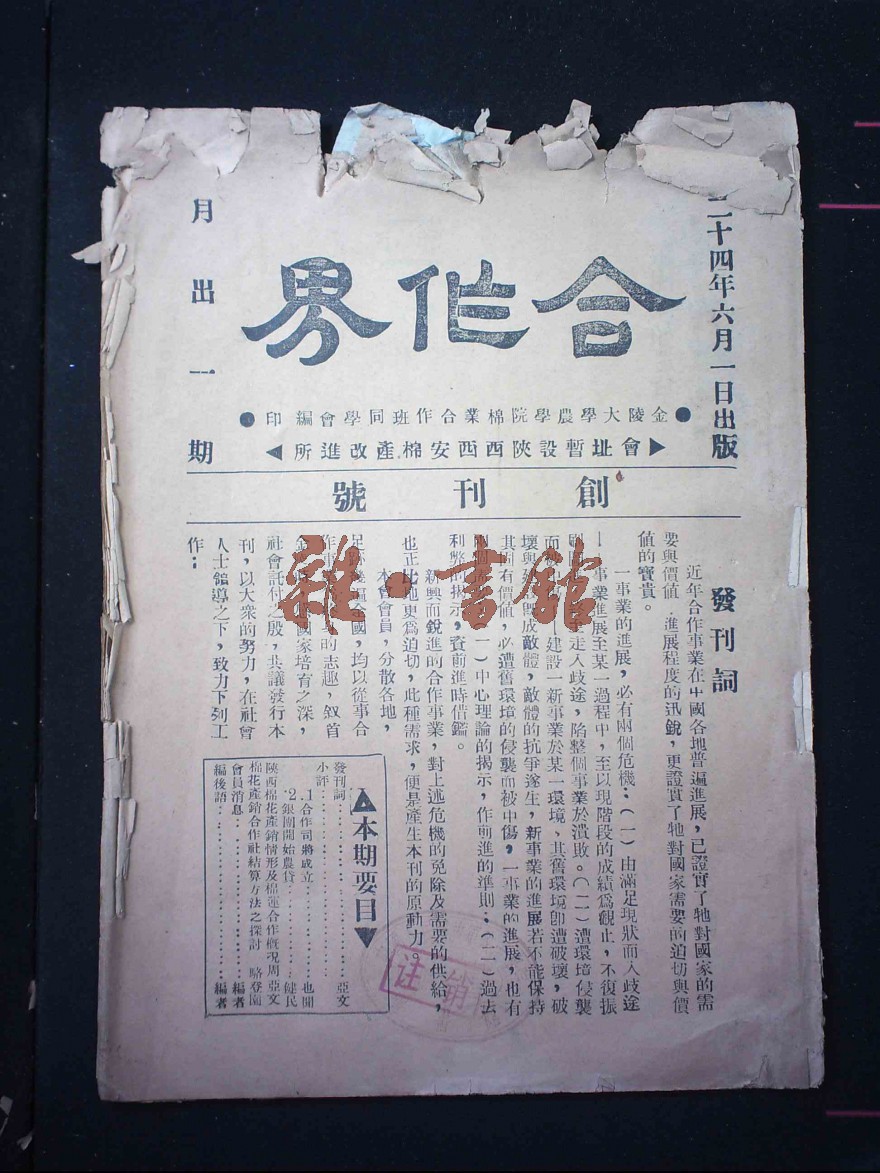 二十四年六月一日出版
合作界
月出一期
●金陵大學農學院棉業合作班同學會編印●
會址暫設陝西西安棉產改進所
創刊號
發刊詞
近年合作事業在中國各地普遍進展，已證實了牠對國家的需
要與價值，進展程度的迅銳，更證實了牠對國家需要的迫切與價
值的寶貴。
一事業的進展，必有兩個危機：（一）由滿足現狀而入歧途
—事業進展至某一過程中，至以現階段的成績爲觀止，不復振
走入歧途，陷整個事業於潰敗。（二）遭環境侵襲
而被—建設一新事業於某一環境、其舊環境卽遭破壞，破
壞與成敵體，敵體的抗爭遂生，新事業的進展若不能保持
其固有價值，必遭舊環境的侵襲而被中傷，一事業的進展，也有
兩個（一）中心理論的揭示，作前進的準則：（二）過去
利弊的揭示，資前進時借鑑。
新興而銳進的合作事業，對上述危機的免除及需要的供給，
也正比地更爲迫切，此種需求，便是產生本刊的原動力。
本會會員，分散各地，
足跡國，均以從事合
作事的志趣，叙首
金國家培育之深，
社會託付之殷，共議發行本
刊，以大衆的努力，在社會
人士領導之下，致力下列工
作：
▲本期要目▼
發刊詞…………亞文
小評：
1.合作司將成立…………也聞
2.銀團開始農貸…………健民
陝西棉花產銷情形及棉運合作概況 周亞文
棉花產銷合作社結算方法之探討 駱登南
會員消息…………編者
編後語…………編者
雜·書館
注銷